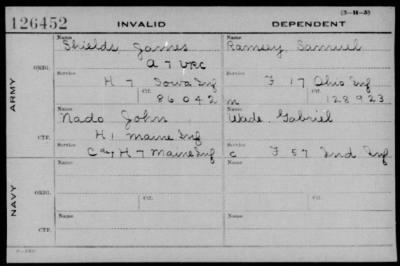 (3-H-3)
126452 INVALID DEPENDENT
Name Name
Shields James Ramsey Samuel
A 7 VRC
ORIG. Service Service
H 7 Iowa Inf F 17 Ohio Inf
Ctf. 86042 m Ctf. 128923
ARMY
Name Name
Nado John Wade Gabriel
H 1 Maine Inf
CTF. Service Service
Co H 7 Maine Inf c F 57 Ind Inf
Name Name
ORIG. Service Ctf. Service Ctf.
NAVY
Name Name
CTF. Service Service